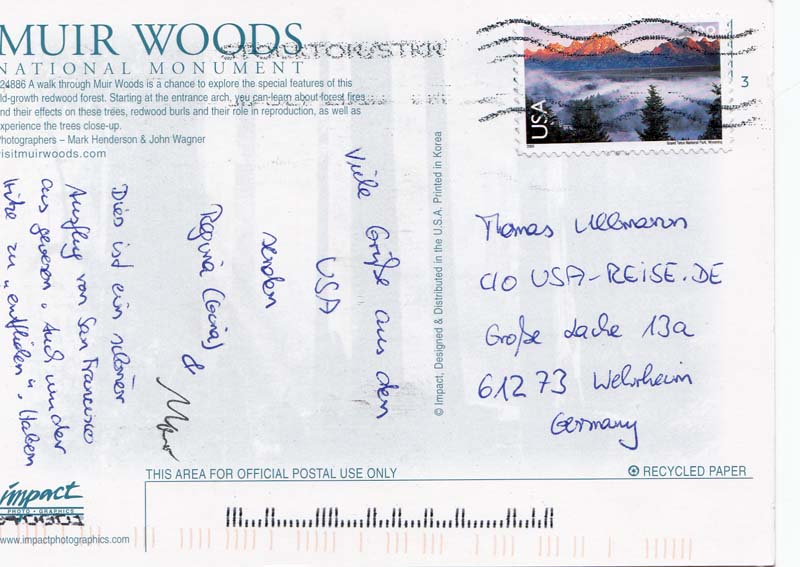 MUIR WOODS
NATIONAL MONUMENT
24886 A walk through Muir Woods is a chance to explore the special features of this
ld-growth redwood forest. Starting at the entrance arch, you can learn about forest fires
nd their effects on these trees, redwood burls and their role in reproduction, as well as
xperience the trees close-up.
hotographers – Mark Henderson & John Wagner
visitmuirwoods.com
USA
Grand Teton National Park, Wyoming
3
Viele Grüße aus den
USA
senden
Regina (Gina)
&
Dies ist ein schöner
Ausflug von San Francisco
aus gewesen. Auch um der
Hitze zu "entfliehen".
© Impact, Designed & Distributed in the U.S.A. Printed in Korea
Thomas Ullmann
c/o USA-REISE.DE
Große Lache 13a
61273 Wehrheim
Germany
THIS AREA FOR OFFICIAL POSTAL USE ONLY
RECYCLED PAPER
impact
PHOTO • GRAPHICS
www.impactphotographics.com